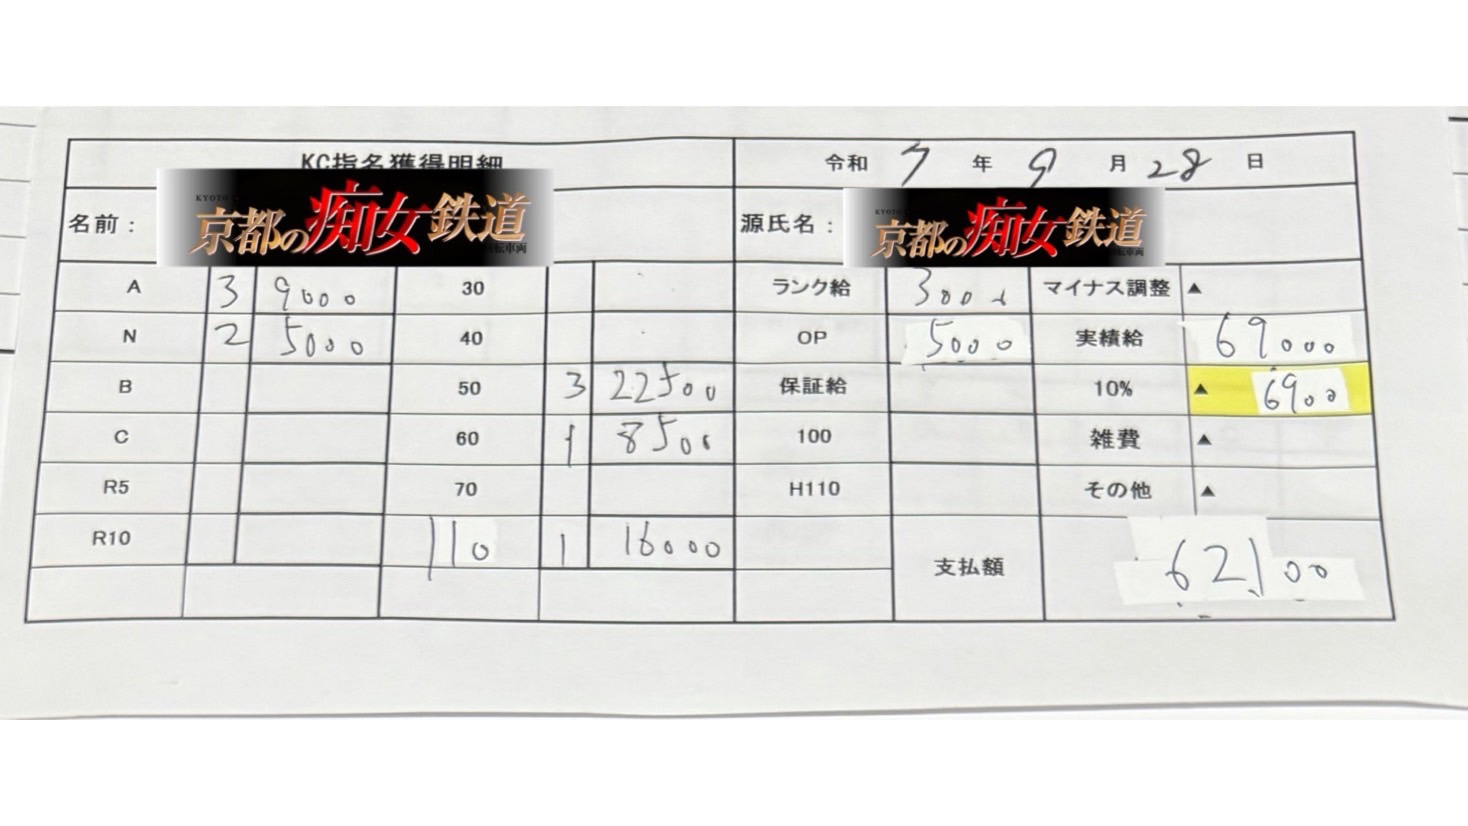 KC指名獲得明細 令和 7 年 9 月 28 日
名前： KYOTO 京都の痴女鉄道 源氏名： KYOTO 京都の痴女鉄道
A 3 9000 30 ランク給 3000 マイナス調整 ▲
N 2 5000 40 OP 5000 実績給 69000
B 50 3 22500 保証給 10% ▲ 6900
C 60 1 8500 100 雑費 ▲
R5 70 H110 その他 ▲
R10 110 1 16000
支払額 62100